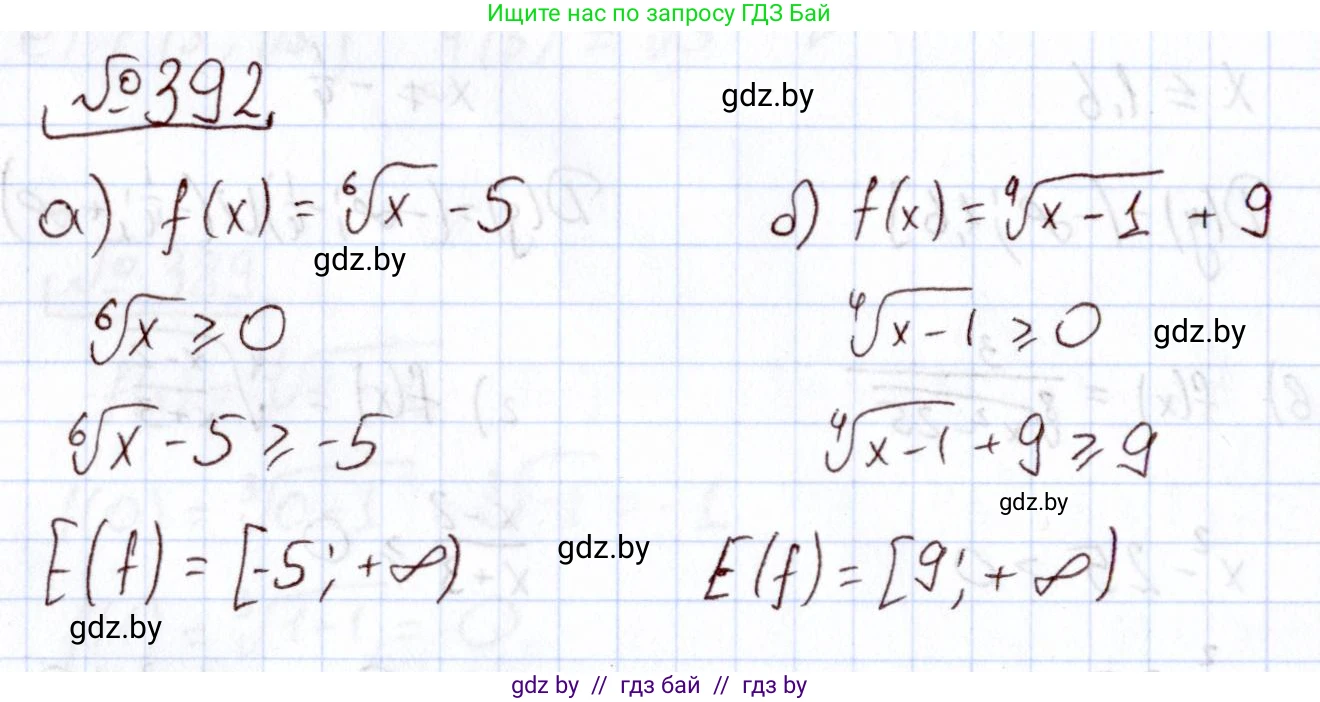 Ищите нас по запросу ГДЗ Бай
№392
gdz.by
а) f(x) = ⁶√x - 5
б) f(x) = ⁹√x - 1 + 9
gdz.by
⁶√x ⩾ 0
⁴√x - 1 ⩾ 0
gdz.by
⁶√x - 5 ⩾ -5
⁴√x - 1 + 9 ⩾ 9
gdz.by
E(f) = [-5; +∞)
gdz.by
E(f) = [9; +∞)
gdz.by
gdz by // гдз бай // gdz by